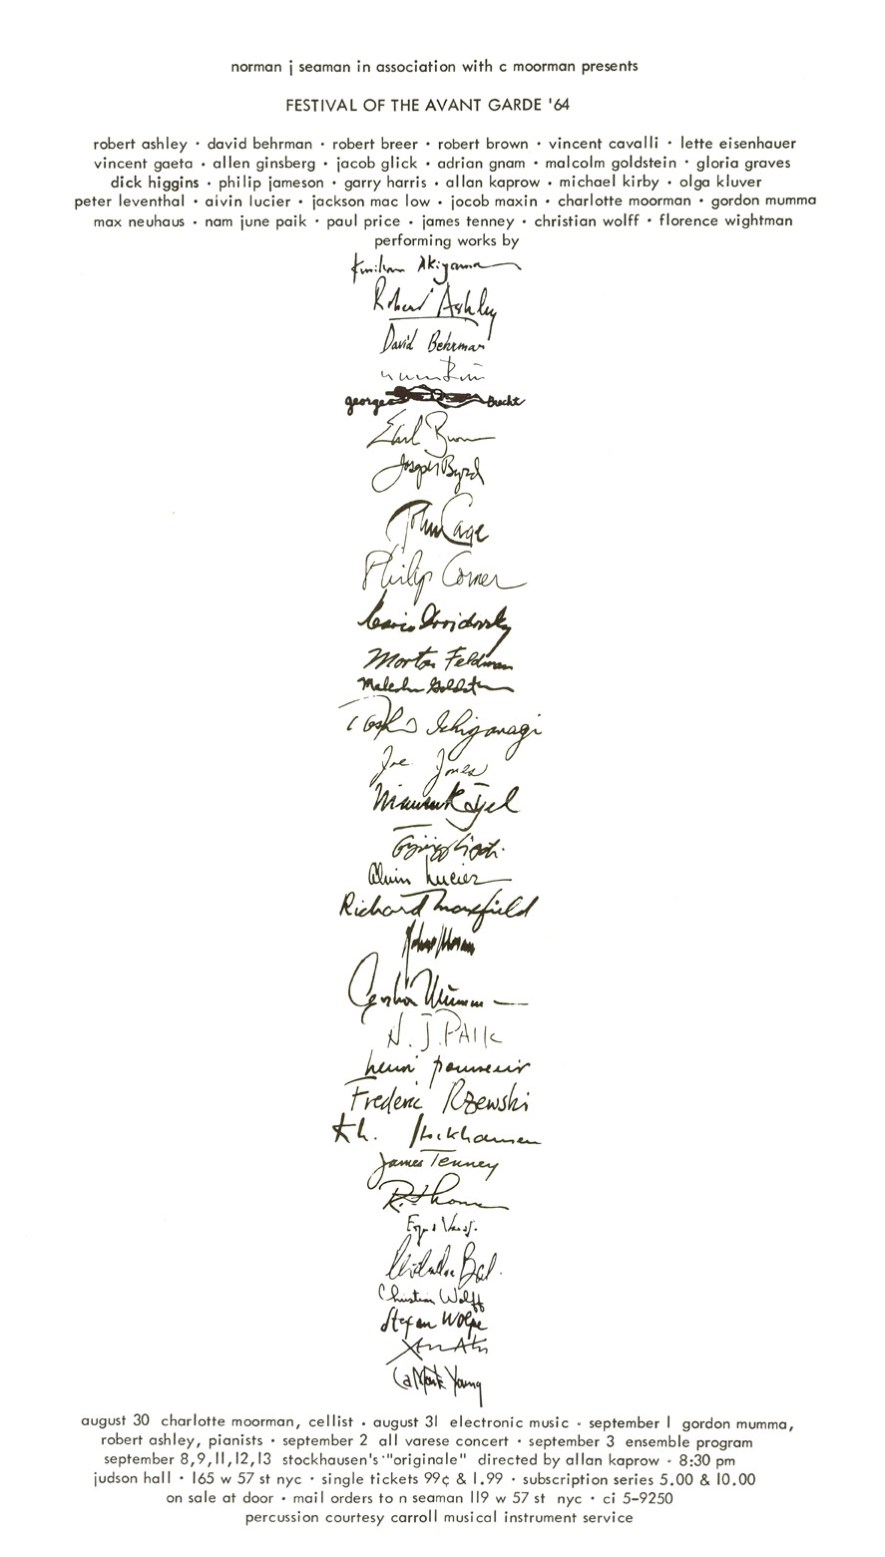 norman j seaman in association with c moorman presents
FESTIVAL OF THE AVANT GARDE '64
robert ashley • david behrman • robert breer • robert brown • vincent cavalli • lette eisenhauer
vincent gaeta • allen ginsberg • jacob glick • adrian gnam • malcolm goldstein • gloria graves
dick higgins • philip jameson • garry harris • allan kaprow • michael kirby • olga kluver
peter leventhal • alvin lucier • jackson mac low • jocob maxin • charlotte moorman • gordon mumma
max neuhaus • nam june paik • paul price • james tenney • christian wolff • florence wightman
performing works by
Kuniharu Akiyama
Robert Ashley
David Behrman
george Brecht
Earl Brown
Joseph Byrd
John Cage
Philip Corner
Mario Davidovsky
Morton Feldman
Malcolm Goldstein
Toshi Ichiyanagi
Joe Jones
Mauricio Kagel
György Ligeti
Alvin Lucier
Richard Maxfield
Robert Moran
Gordon Mumma
N. J. PAIK
henri pousseur
Frederic Rzewski
Kh. Stockhausen
James Tenney
Edgard Varèse
Christian Wolff
Stefan Wolpe
Xenakis
La Monte Young
august 30 charlotte moorman, cellist • august 31 electronic music • september 1 gordon mumma,
robert ashley, pianists • september 2 all varese concert • september 3 ensemble program
september 8,9,11,12,13 stockhausen's "originale" directed by allan kaprow • 8:30 pm
judson hall • 165 w 57 st nyc • single tickets 99¢ & 1.99 • subscription series 5.00 & 10.00
on sale at door • mail orders to n seaman 119 w 57 st nyc • ci 5-9250
percussion courtesy carroll musical instrument service